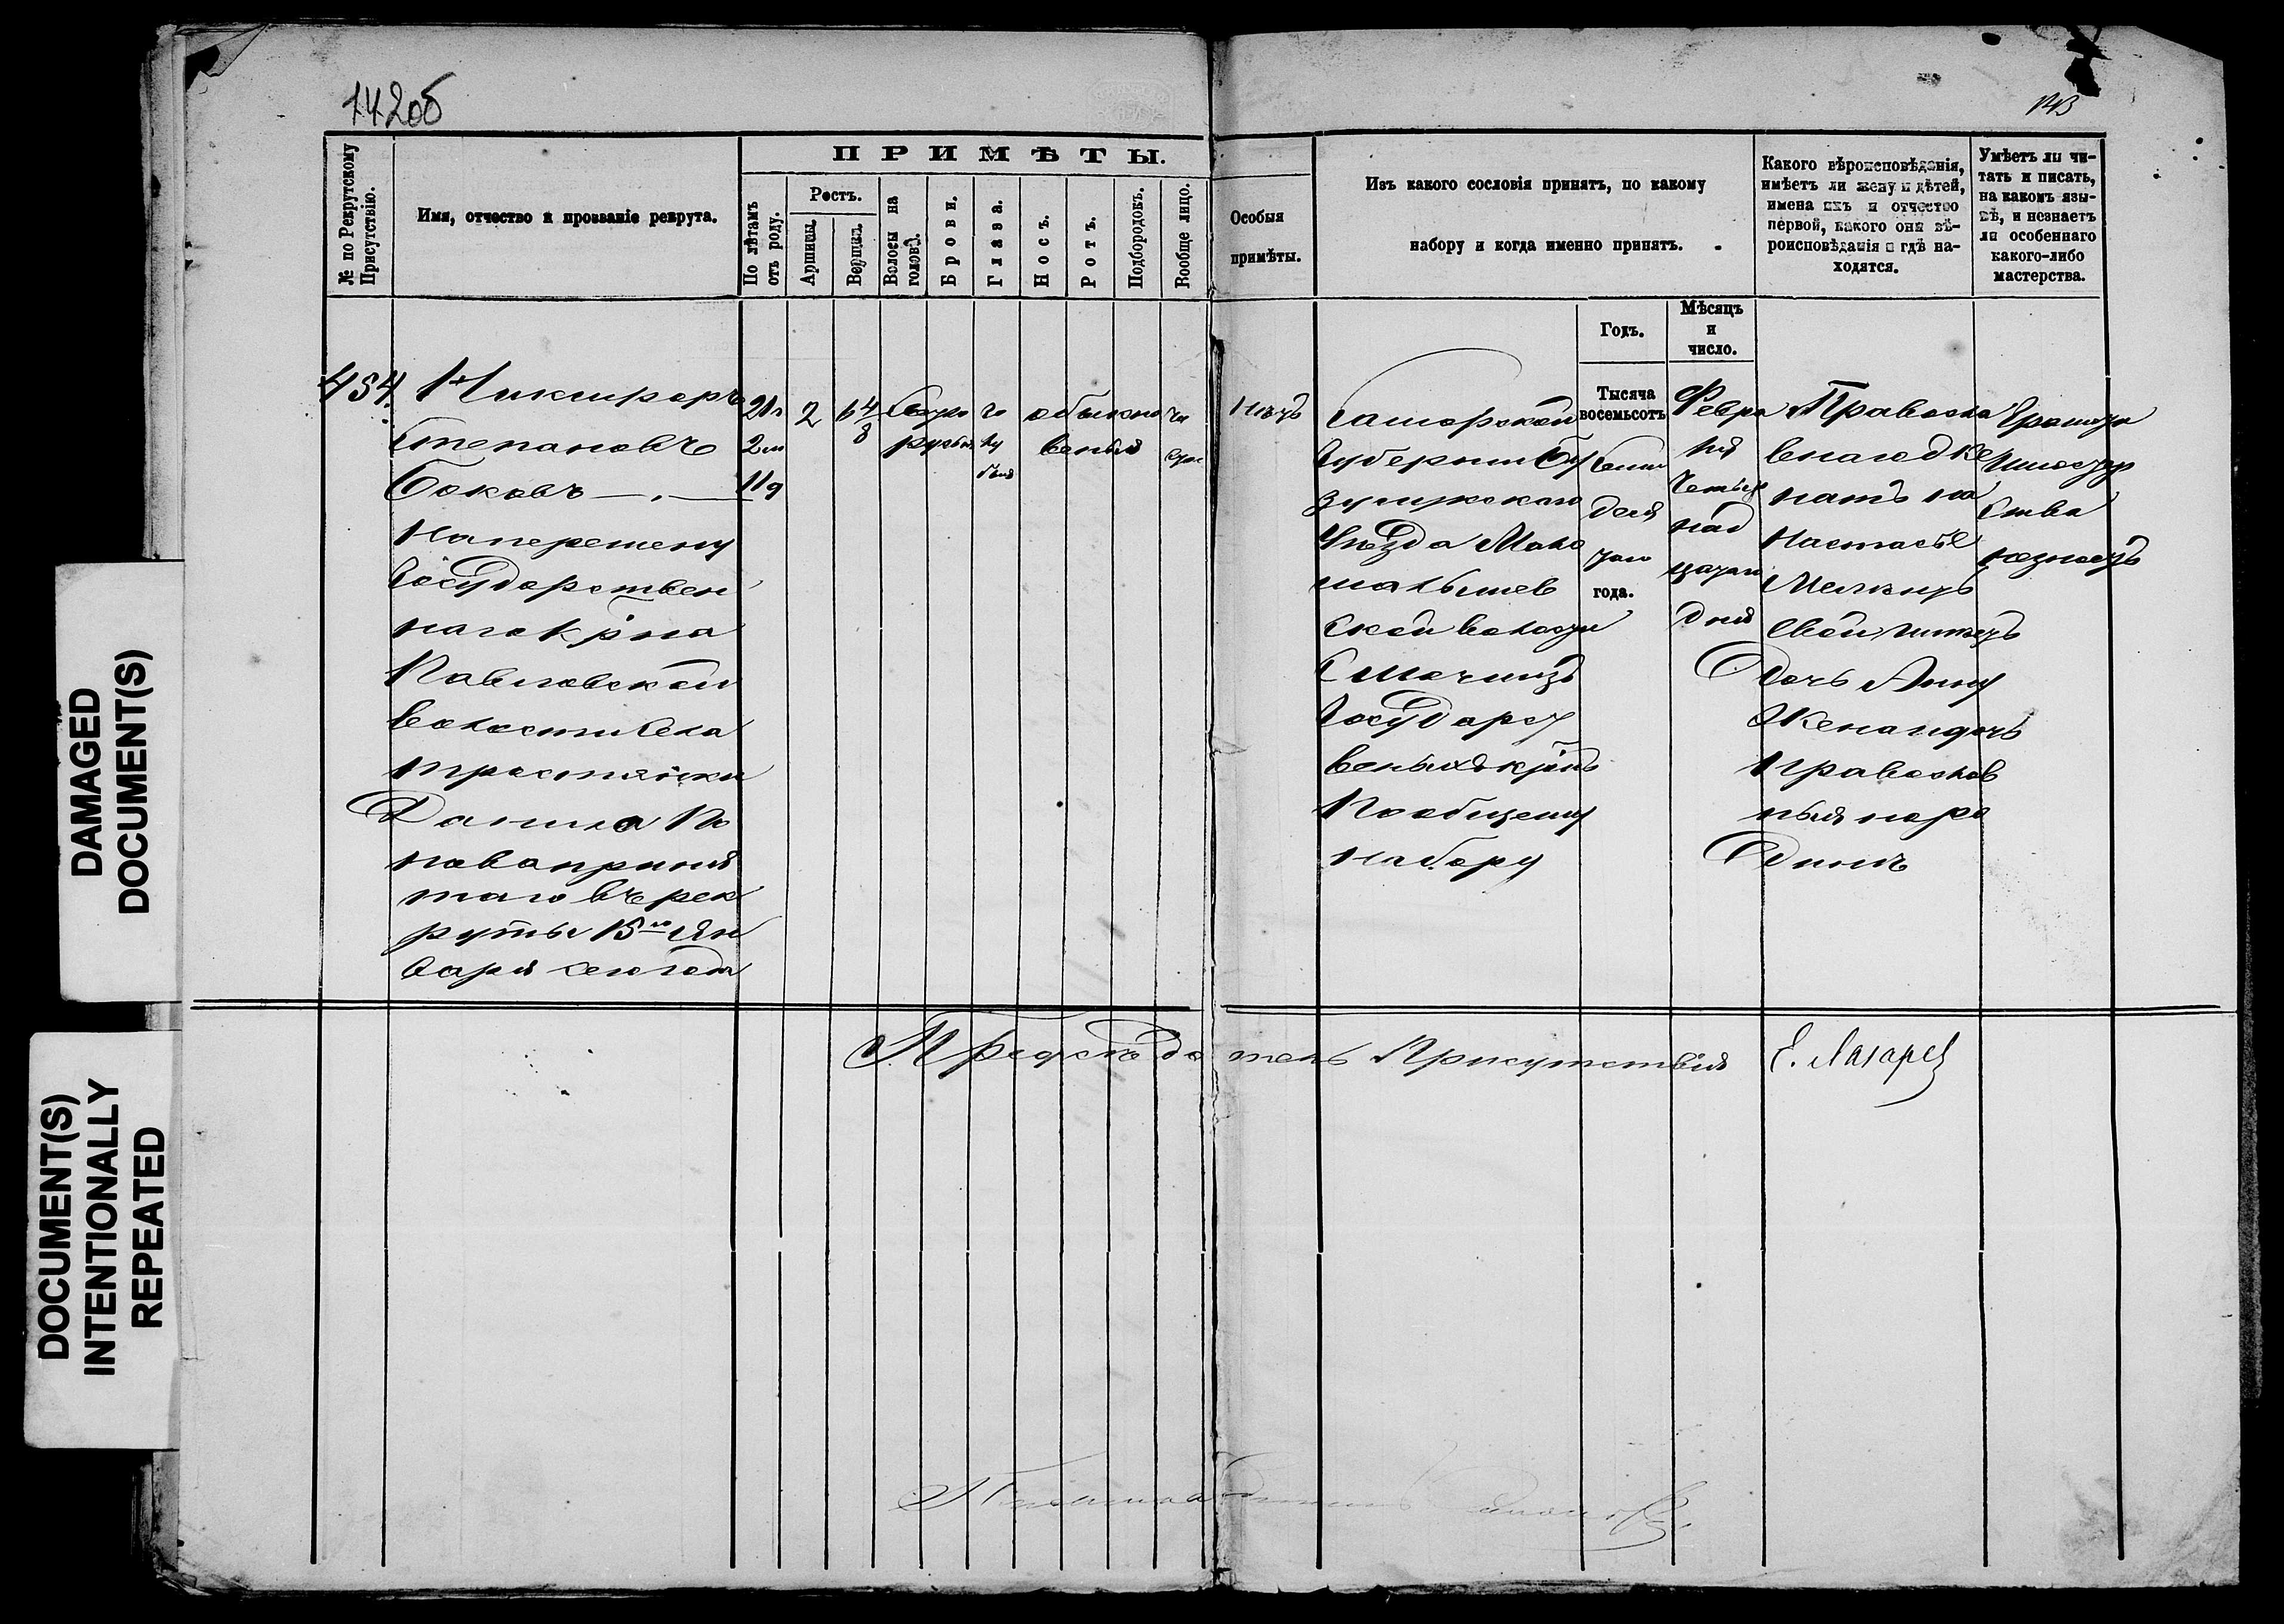 142об
143
№ по Рекрутскому Присутствію.
Имя, отчество и прозваніе рекрута.
ПРИМѢТЫ.
По лѣтамъ отъ роду.
Ростъ.
Аршины.
Вершки.
Волосы на головѣ.
Брови.
Глаза.
Носъ.
Ротъ.
Подбородокъ.
Вообще лицо.
Особыя
примѣты.
Изъ какого сословія принятъ, по какому
набору и когда именно принятъ.
Какого вѣроисповѣданія,
имѣетъ ли жену и дѣтей,
имена ихъ и отчество
первой, какого они вѣ-
роисповѣданія и гдѣ на-
ходятся.
Умѣетъ ли чи-
тать и писать,
на какомъ язы-
кѣ, и незнаетъ
ли особеннаго
какого-либо
мастерства.
Годъ.
Мѣсяцъ
и
число.
454.
Никифоръ
Степановъ
Боковъ
Наперемену
Государствен
наго кр на
Павловской
волости села
Тростянки
Данила По
пова приня
таго въ рек
руты 15го Ян
варя сего года
21л
2м
11д
2
6 4/8
русыя
го
лу
быя
обыкно
веныя
чи
сто
Нѣтъ
Самарской
Губерніи Бу
зулукскаго
Уѣзда Мало
малышев
ской волости
Государст
веныхъ кр нъ
По общему
набору
Тысяча
восемьсотъ
Семи
деся
таго
года.
Февра
ля
Четыр
над
цатаго
дня
Правосла
внаго д Же
натъ на
Настасье
имеетъ
Дочь Анну
Жена и дочь
православ
ныя наро
динѣ
Грамоты
и мастер
ства
незнаетъ
Предсѣдатель Присутствія
Е. Лазарев
DAMAGED
DOCUMENT(S)
DOCUMENT(S)
INTENTIONALLY
REPEATED